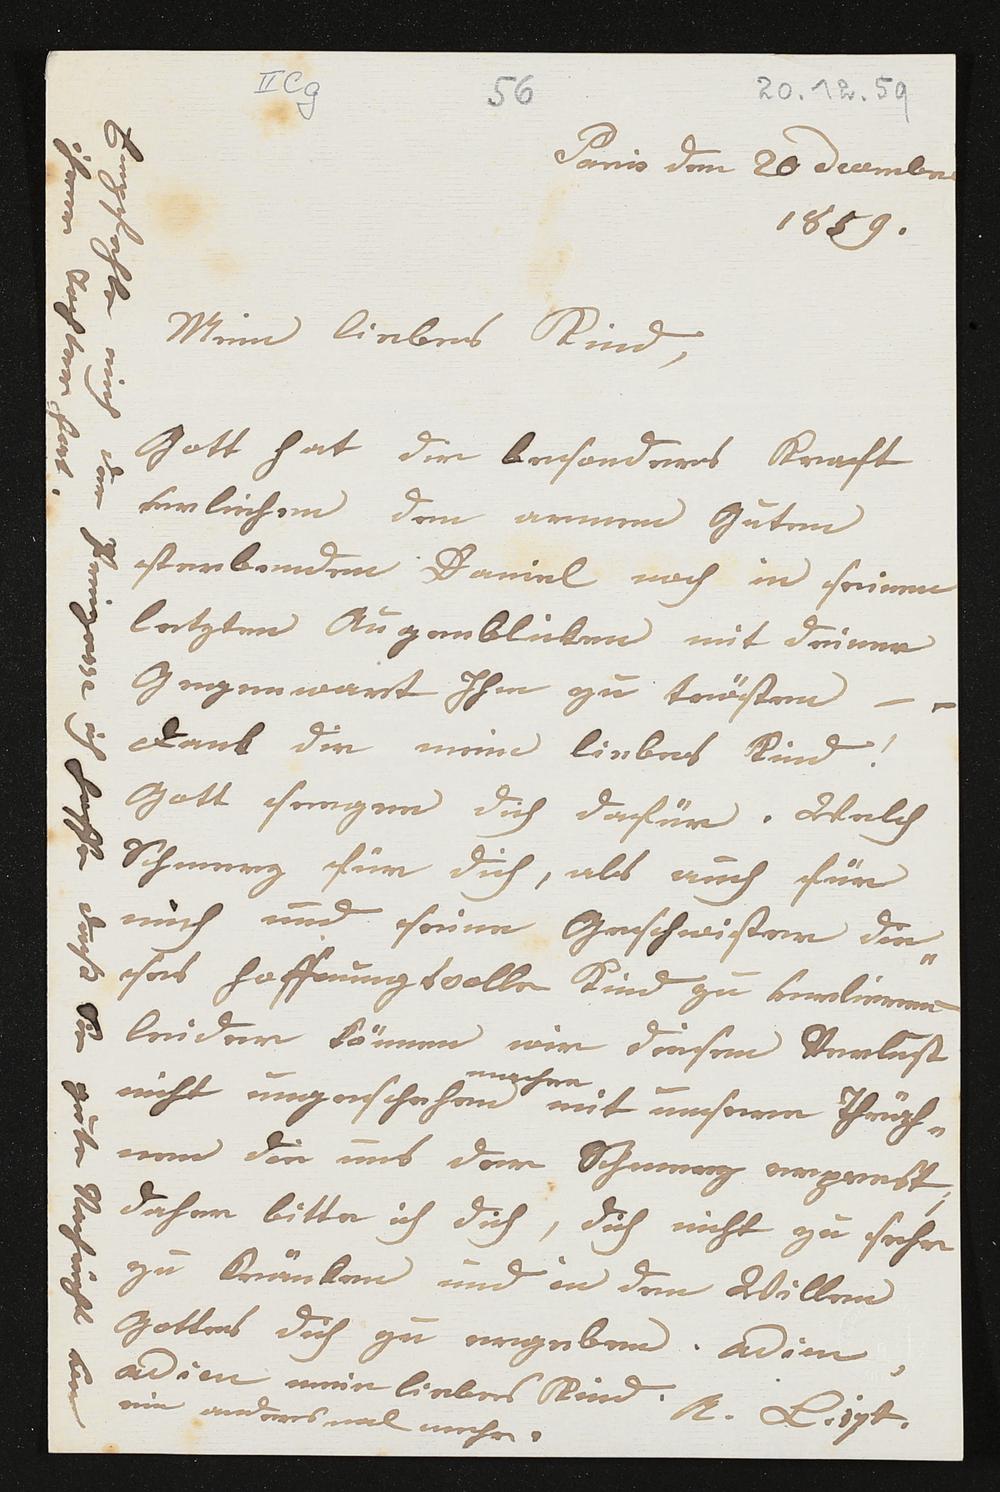 II Cg
56
20.12.59
Paris den 20 Decembre
1859.
Mein liebes Kind,
Gott hat dir besonders Kraft
verliehen den armen Guten
sterbenden Daniel noch in seinen
letzten Augenblicken mit deiner
Gegenwart Ihn zu trösten — –
Dank dir mein liebes Kind!
Gott seegne dich dafür. Welch
Schmerz für dich, als auch für
mich und seine Geschwister die„
ses hoffnungsvolle Kind zu verlieren
leider können wir diesen Verlust
nicht ungeschehen machen mit unseren Thräh„
nen die uns der Schmerz erpresst,
daher bitte ich dich, dich nicht zu sehr
zu kränken und in den Willen
Gottes dich zu ergeben. adieu,
adieu mein liebes Kind.
ein anders mal mehr.
A. Liszt.
Empfehle mich der Prinzesse ich hoffe daß Sie gute Nachricht von
ihrer Tochter hat.